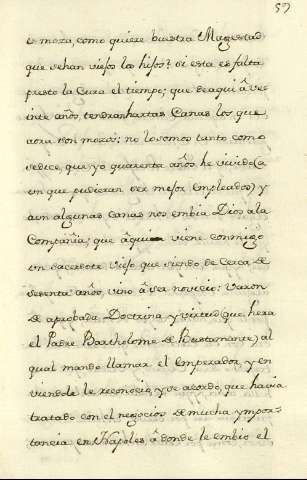 57
es moza, como quiere buestra Magestad
que sehan viejos los hijos? si esta es falta
presto la Cura el tiempo; que deaqui â ve
inte años tendran hartas Canas los que,
aora son mozos: no lo somos tanto como
sedice, que yo quarenta años he vivido (a
un que pudieran ser mejor empleados) y
aun algunas canas nos embia Dios ala
Compañia; que âqui viene conmigo
un sacerdote viejo que siendo de Cerca de
sesenta años, vino â ser novicio: varon
de aprobada Doctrina y virtud que hera
el Padre Bartholome de Bustamante) al
qual mando llamar el Emperador, y en
viendole le reconocio, y se acordo, que havia
tratado con el negocios de mucha ympor-
tancia en Napoles, â donde le embio el